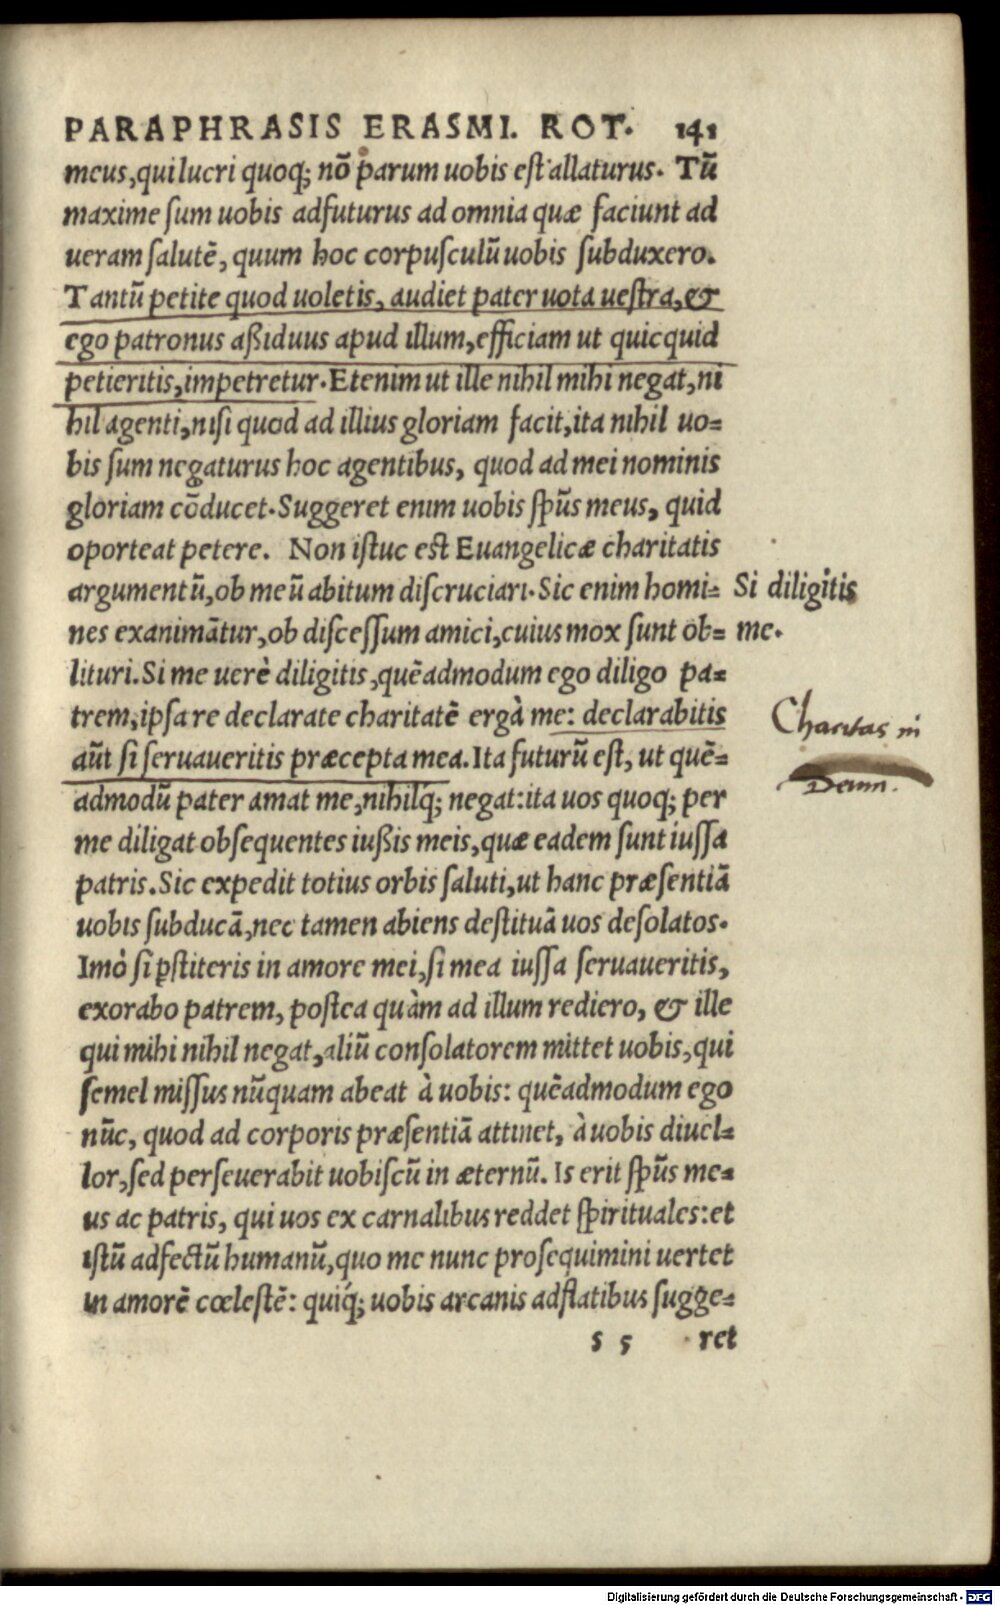 PARAPHRASIS ERASMI. ROT. 141
meus, qui lucri quoq; nō parum uobis est allaturus. Tū
maxime sum uobis adfuturus ad omnia quæ faciunt ad
ueram salutē, quum hoc corpusculū uobis subduxero.
Tantū petite quod uoletis, audiet pater uota uestra, &
ego patronus aßiduus apud illum, efficiam ut quicquid
petieritis, impetretur. Etenim ut ille nihil mihi negat, ni
hil agenti, nisi quod ad illius gloriam facit, ita nihil uo=
bis sum negaturus hoc agentibus, quod ad mei nominis
gloriam cōducet. Suggeret enim uobis spūs meus, quid
oporteat petere. Non istuc est Euangelicæ charitatis
argumentū, ob meū abitum discruciari. Sic enim homi=
Si diligitis
nes exanimātur, ob discessum amici, cuius mox sunt ob=
me.
lituri. Si me uerè diligitis, quēadmodum ego diligo pa=
trem, ipsa re declarate charitatē ergà me: declarabitis
Charitas in
aūt si seruaueritis præcepta mea. Ita futurū est, ut quē=
Deum.
admodū pater amat me, nihilq́; negat: ita uos quoq; per
me diligat obsequentes iußis meis, quæ eadem sunt iussa
patris. Sic expedit totius orbis saluti, ut hanc præsentiā
uobis subducā, nec tamen abiens destituā uos desolatos.
Imò si ꝑstiteris in amore mei, si mea iussa seruaueritis,
exorabo patrem, postea quàm ad illum rediero, & ille
qui mihi nihil negat, aliū consolatorem mittet uobis, qui
semel missus nūquam abeat à uobis: quēadmodum ego
nūc, quod ad corporis præsentiā attinet, à uobis diuel=
lor, sed perseuerabit uobiscū in æternū. Is erit spūs me=
us ac patris, qui uos ex carnalibus reddet spirituales: et
istū adfectū humanū, quo me nunc prosequimini uertet
in amorē cœlestē: quiq́; uobis arcanis adflatibus sugge=
s 5 ret
Digitalisierung gefördert durch die Deutsche Forschungsgemeinschaft - DFG